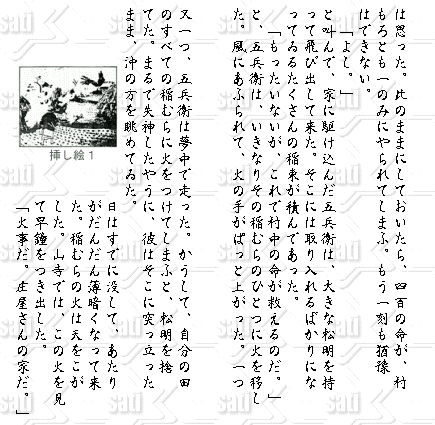 は思つた。此のまゝにしておいたら、四百の命が、村
もろとも一のみにやられてしまふ。もう一刻も猶豫
はできない。
「よし。」
と叫んで、家に駆け込んだ五兵衛は、大きな松明を持
つて飛び出して来た。そこには取り入れるばかりにな
つてゐるたくさんの稲束が積んであつた。
「もつたいないが、これで村中の命が救えるのだ。」
と、五兵衛は、いきなりその稲むらのひとつに火を移し
た。風にあふられて、火の手がぱつと上がつた。一つ
又一つ、五兵衛は夢中で走つた。かうして、自分の田
のすべての稲むらに火をつけてしまふと、松明を捨
てた。まるで失神したやうに、彼はそこに突つ立つた
まま、沖の方を眺めてゐた。
日はすでに没して、あたり
がだんだん薄暗くなつて来
た。稲むらの火は天をこが
した。山寺では、この火を見
て早鐘をつき出した。
「火事だ。庄屋さんの家だ。」
挿し絵1
sati